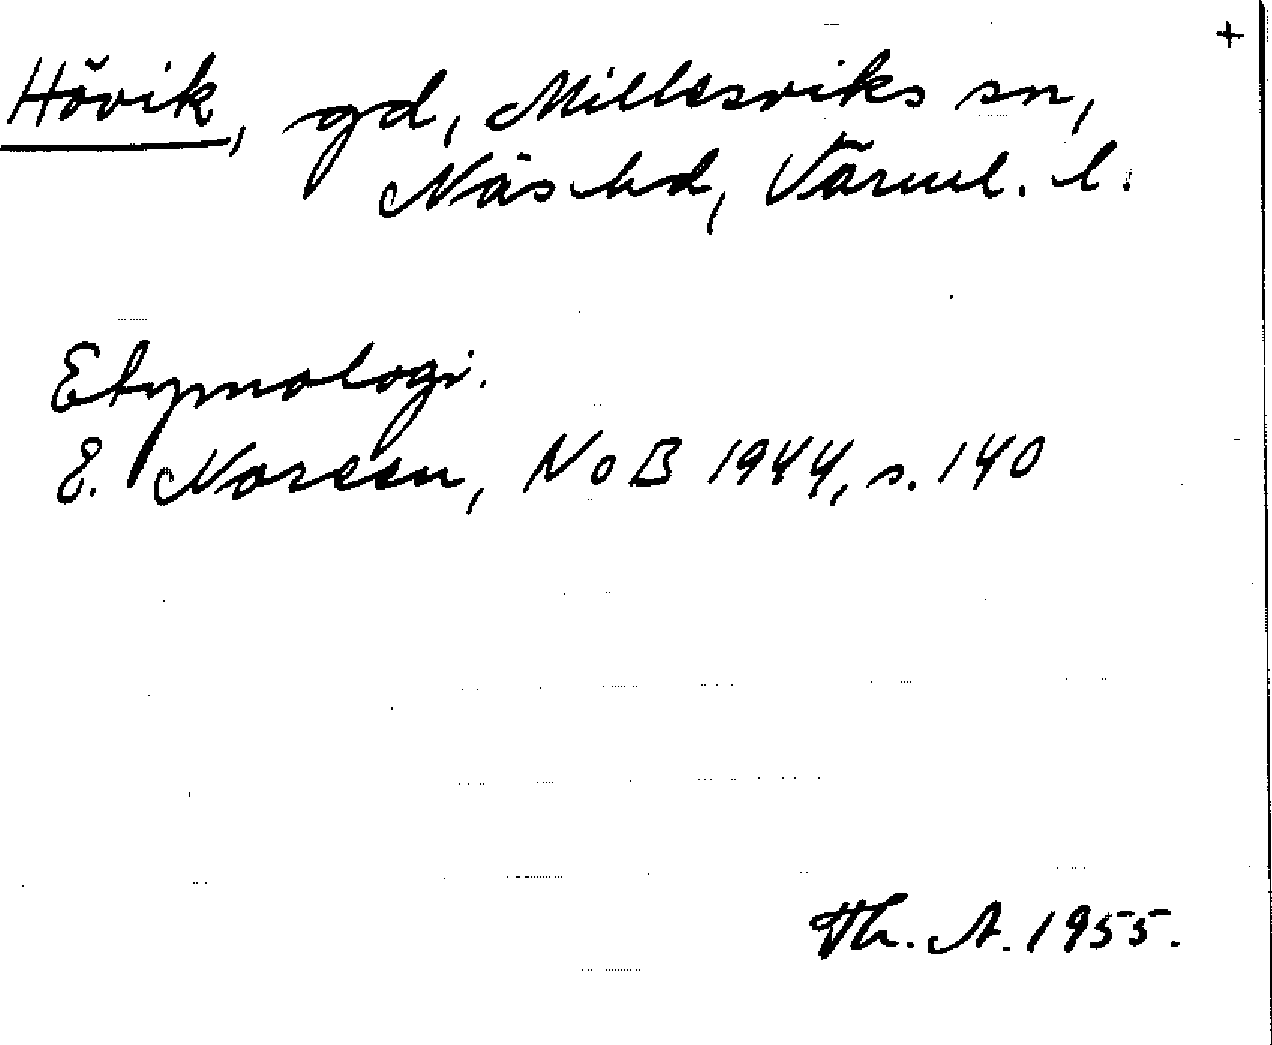 +
Hövik, gd, Millesviks sn,
Näs hd, Värml. l.
Etymologi.
E. Noreen, NoB 1944, s. 140
Th. A. 1955.